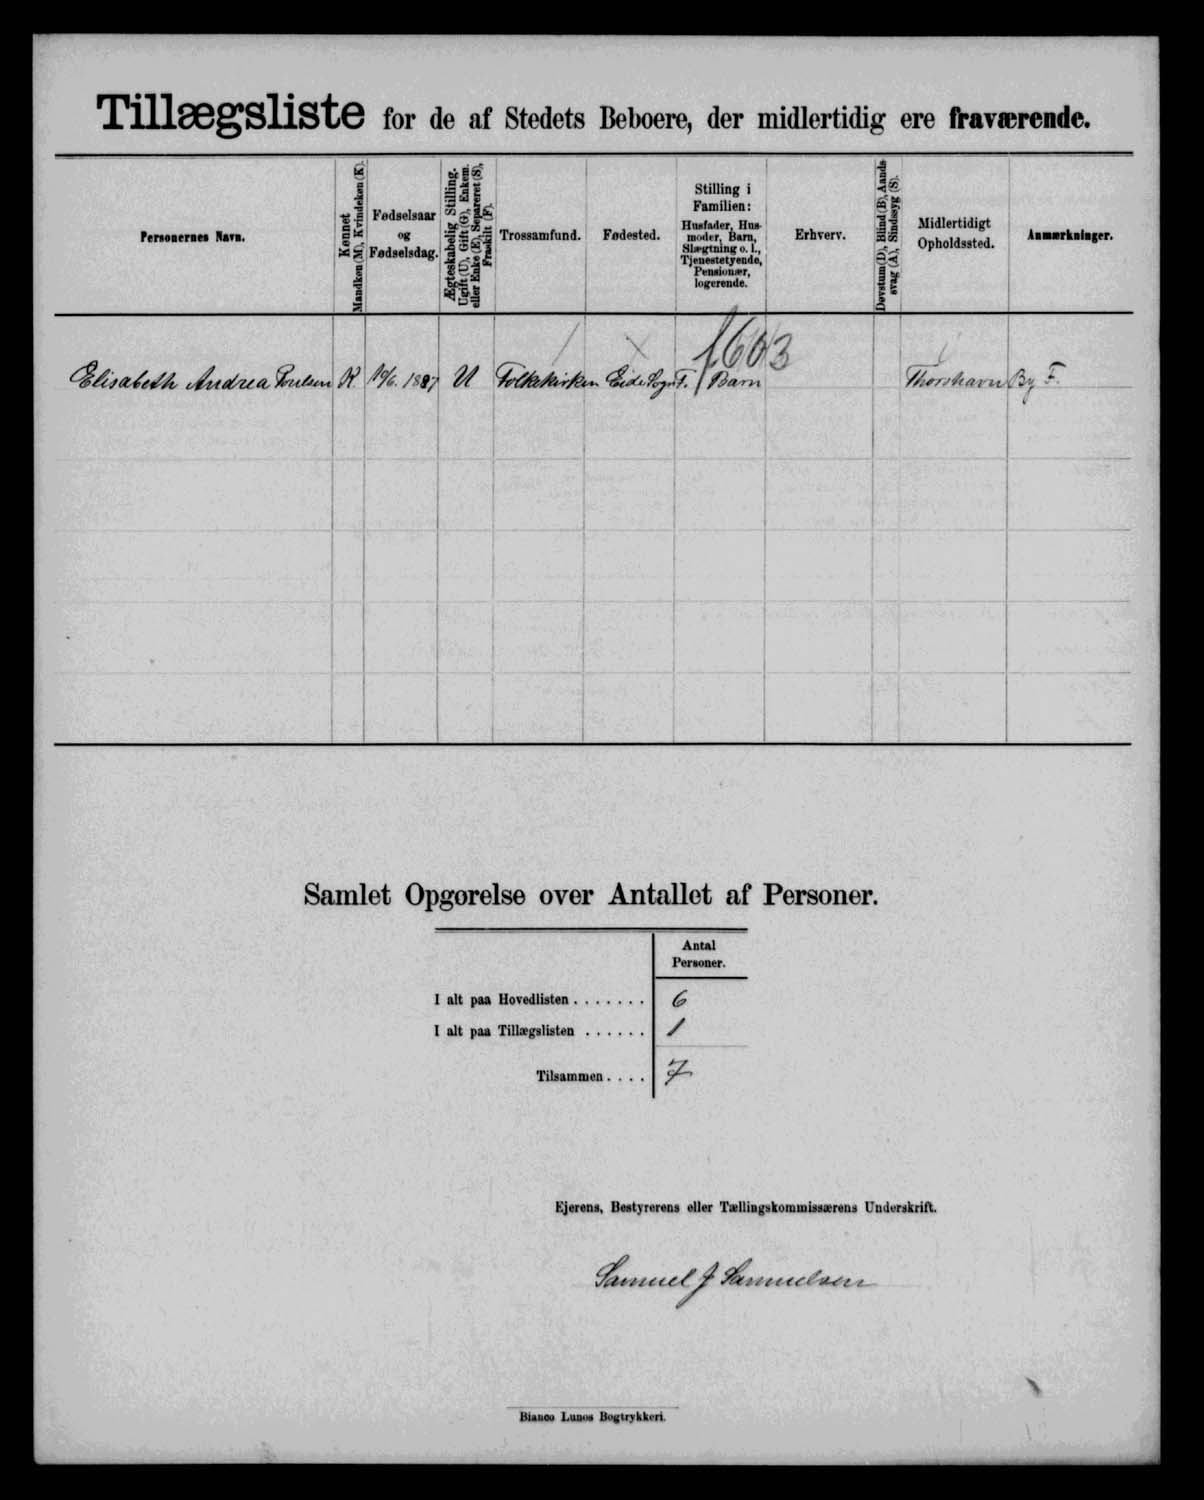 Tillægsliste for de af Stedets Beboere, der midlertidig ere fraværende.
Personernes Navn.
Kønnet
Mandkøn (M), Kvindekøn (K).
Fødselsaar
og
Fødselsdag.
Ægteskabelig Stilling.
Ugift (U), Gift (G), Enkem.
eller Enke (E), Separeret (S),
Fraskilt (F).
Trossamfund.
Fødested.
Stilling i
Familien:
Husfader, Hus-
moder, Barn,
Slægtning o. l.,
Tjenestetyende,
Pensionær,
logerende.
Erhverv.
Døvstum (D), Blind (B), Aands-
svag (A), Sindssyg (S).
Midlertidigt
Opholdssted.
Anmærkninger.
Elisabeth Andrea Poulsen K 1887 U Folkekirken Eide Sogn F. Barn Thorshavn By F.
Samlet Opgørelse over Antallet af Personer.
Antal
Personer.
I alt paa Hovedlisten . . . . . . . 6
I alt paa Tillægslisten . . . . . . 1
Tilsammen . . . . 7
Ejerens, Bestyrerens eller Tællingskommissærens Underskrift.
Samuel J Samuelsen
Bianco Lunos Bogtrykkeri.